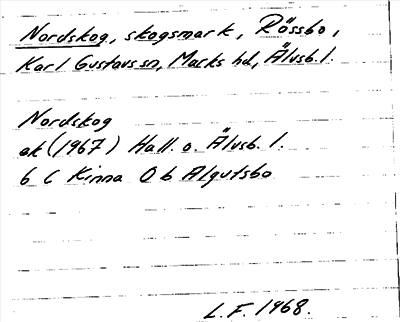 Nordskog, skogsmark, Rössbo,
Karl Gustavs sn, Marks hd, Älvsb. l.
Nordskog
ek (1967) Hall. o. Älvsb. l.
6 C Kinna 0 b Algutsbo
L.F. 1968.